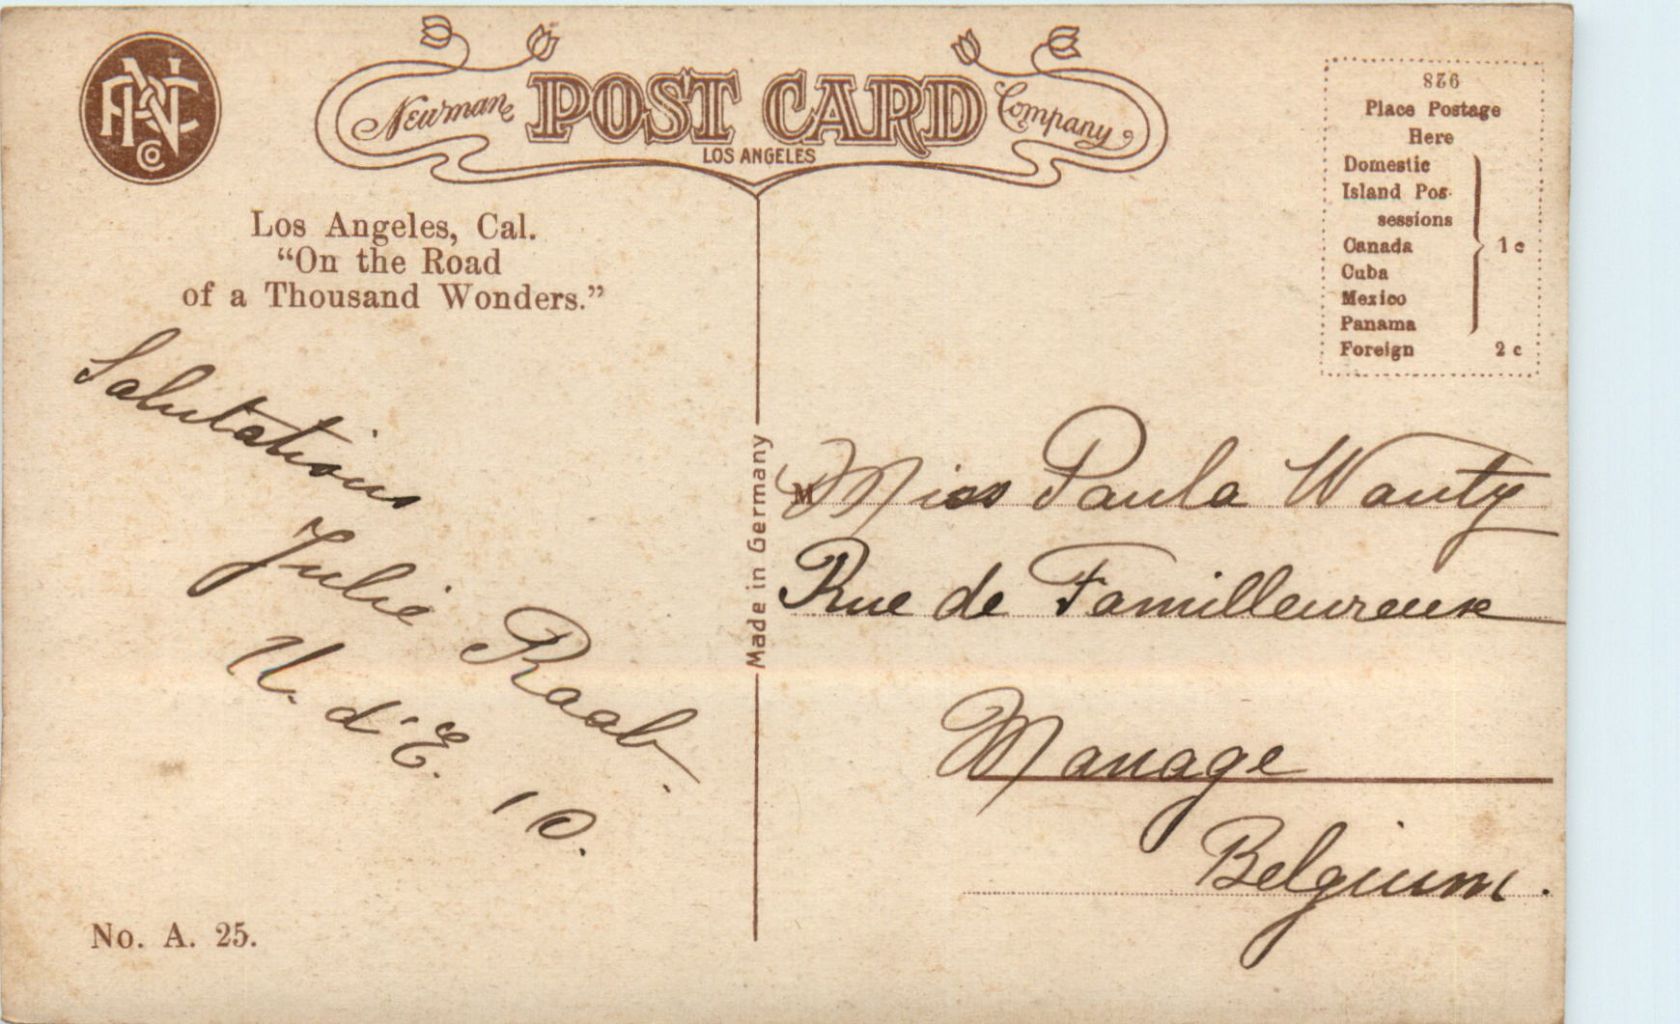 PNC Co
Newman POST CARD Company
LOS ANGELES
Los Angeles, Cal.
“On the Road
of a Thousand Wonders.”
Salutations
Julie Raab.
U. d'E. 10.
No. A. 25.
Made in Germany
926
Place Postage
Here
Domestic
Island Pos-
sessions
Canada 1 c
Cuba
Mexico
Panama
Foreign 2 c
M Miss Paula Wauty
Rue de Familleureux
Manage
Belgium.